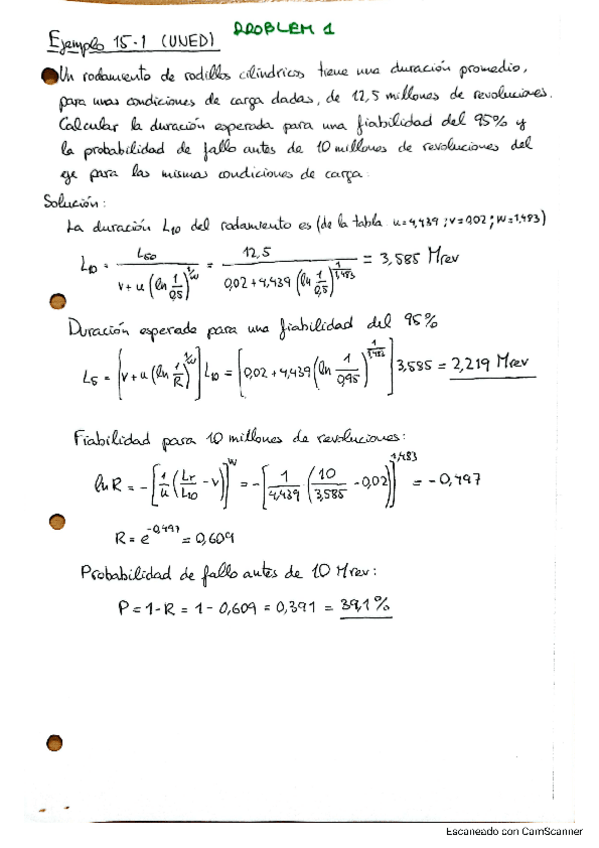 PROBLEM 1
Ejemplo 15.1 (UNED)
Un rodamiento de rodillos cilíndricos tiene una duración promedio,
para unas condiciones de carga dadas, de 12,5 millones de revoluciones.
Calcular la duración esperada para una fiabilidad del 95% y
la probabilidad de fallo antes de 10 millones de revoluciones del
eje para las mismas condiciones de carga.
Solución:
La duración L10 del rodamiento es (de la tabla u=4,439; v=0,02; w=1,483)
L10 = L50 / (v + u (ln 1/0,5)^(1/w)) = 12,5 / (0,02 + 4,439 (ln 1/0,5)^(1/1,483)) = 3,585 Mrev
Duración esperada para una fiabilidad del 95%
L5 = [v + u (ln 1/R)^(1/w)] L10 = [0,02 + 4,439 (ln 1/0,95)^(1/1,483)] 3,585 = 2,219 Mrev
Fiabilidad para 10 millones de revoluciones:
ln R = - [1/u (Lr/L10 - v)]^w = - [1/4,439 (10/3,585 - 0,02)]^1,483 = - 0,497
R = e^-0,497 = 0,609
Probabilidad de fallo antes de 10 Mrev:
P = 1-R = 1 - 0,609 = 0,391 = 39,1%
Escaneado con CamScanner